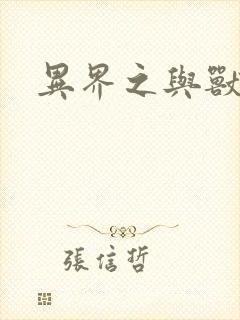 異界之與獸
張信哲